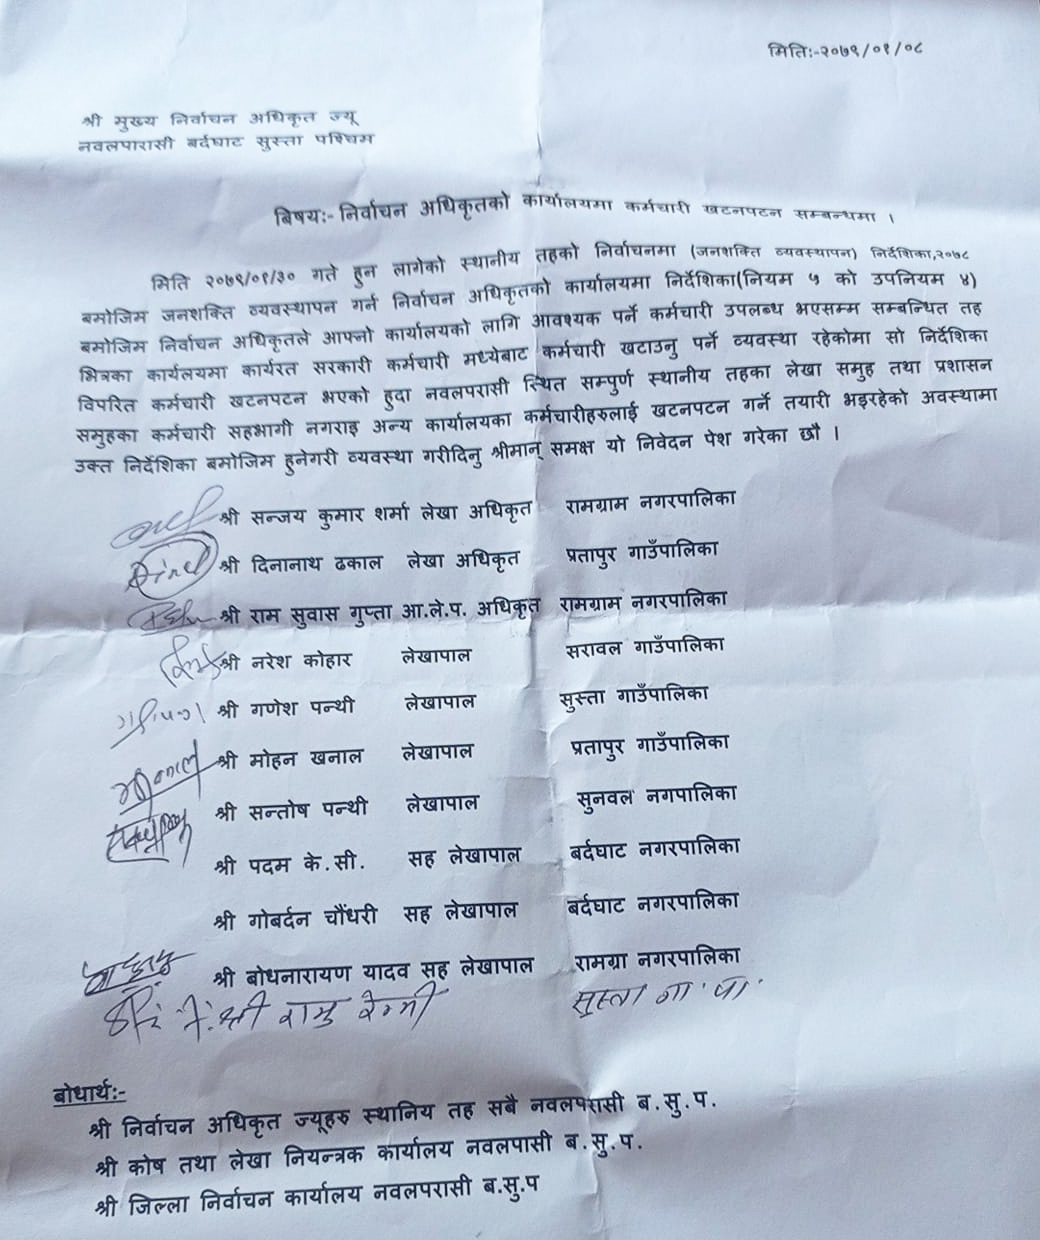 मिति:-२०७९/०१/०८
श्री मुख्य निर्वाचन अधिकृत ज्यू
नवलपारासी बर्दघाट सुस्ता पश्चिम
बिषय:- निर्वाचन अधिकृतको कार्यालयमा कर्मचारी खटनपटन सम्बन्धमा ।
मिति २०७९/०१/३० गते हुन लागेको स्थानीय तहको निर्वाचनमा (जनशक्ति व्यवस्थापन) निर्देशिका,२०७८
बमोजिम जनशक्ति व्यवस्थापन गर्न निर्वाचन अधिकृतको कार्यालयमा निर्देशिका(नियम ५ को उपनियम ४)
बमोजिम निर्वाचन अधिकृतले आफ्नो कार्यालयको लागि आवश्यक पर्ने कर्मचारी उपलब्ध भएसम्म सम्बन्धित तह
भित्रका कार्यलयमा कार्यरत सरकारी कर्मचारी मध्येबाट कर्मचारी खटाउनु पर्ने व्यवस्था रहेकोमा सो निर्देशिका
विपरित कर्मचारी खटनपटन भएको हुदा नवलपरासी स्थित सम्पुर्ण स्थानीय तहका लेखा समुह तथा प्रशासन
समुहका कर्मचारी सहभागी नगराइ अन्य कार्यालयका कर्मचारीहरुलाई खटनपटन गर्ने तयारी भइरहेको अवस्थामा
उक्त निर्देशिका बमोजिम हुनेगरी व्यवस्था गरीदिनु श्रीमान् समक्ष यो निवेदन पेश गरेका छौ ।
श्री सन्जय कुमार शर्मा लेखा अधिकृत रामग्राम नगरपालिका
श्री दिनानाथ ढकाल लेखा अधिकृत प्रतापुर गाउँपालिका
श्री राम सुवास गुप्ता आ.ले.प. अधिकृत रामग्राम नगरपालिका
श्री नरेश कोहार लेखापाल सरावल गाउँपालिका
श्री गणेश पन्थी लेखापाल सुस्ता गाउँपालिका
श्री मोहन खनाल लेखापाल प्रतापुर गाउँपालिका
श्री सन्तोष पन्थी लेखापाल सुनवल नगपालिका
श्री पदम के.सी. सह लेखापाल बर्दघाट नगरपालिका
श्री गोबर्दन चौंधरी सह लेखापाल बर्दघाट नगरपालिका
श्री बोधनारायण यादव सह लेखापाल रामग्रा नगरपालिका
श्री रामु रेग्मी सुस्ता गा.पा.
बोधार्थ:-
श्री निर्वाचन अधिकृत ज्यूहरु स्थानिय तह सबै नवलपरासी ब.सु.प.
श्री कोष तथा लेखा नियन्त्रक कार्यालय नवलपासी ब.सु.प.
श्री जिल्ला निर्वाचन कार्यालय नवलपरासी ब.सु.प